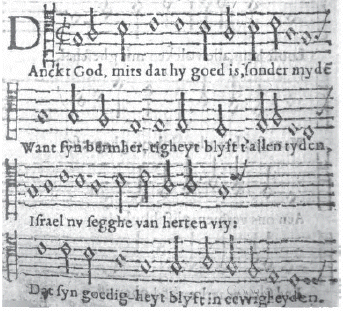 DAnckt God, mits dat hy goed is, ſonder mydẽ
Want ſyn bermher- tigheyt blyft t'allen tyden,
Iſrael nv ſegghe van herten vry:
Dat ſyn goedig-heyt blyft in eewigheyden.